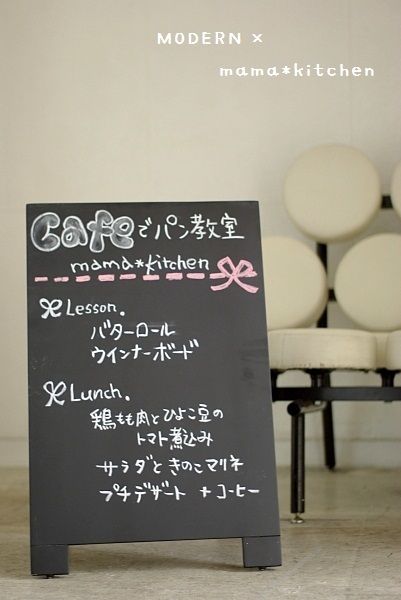 MODERN ×
mama*kitchen
Cafeでパン教室
mama*kitchen
Lesson.
バターロール
ウインナーボード
Lunch.
鶏もも肉とひよこ豆の
トマト煮込み
サラダときのこマリネ
プチデザート +コーヒー